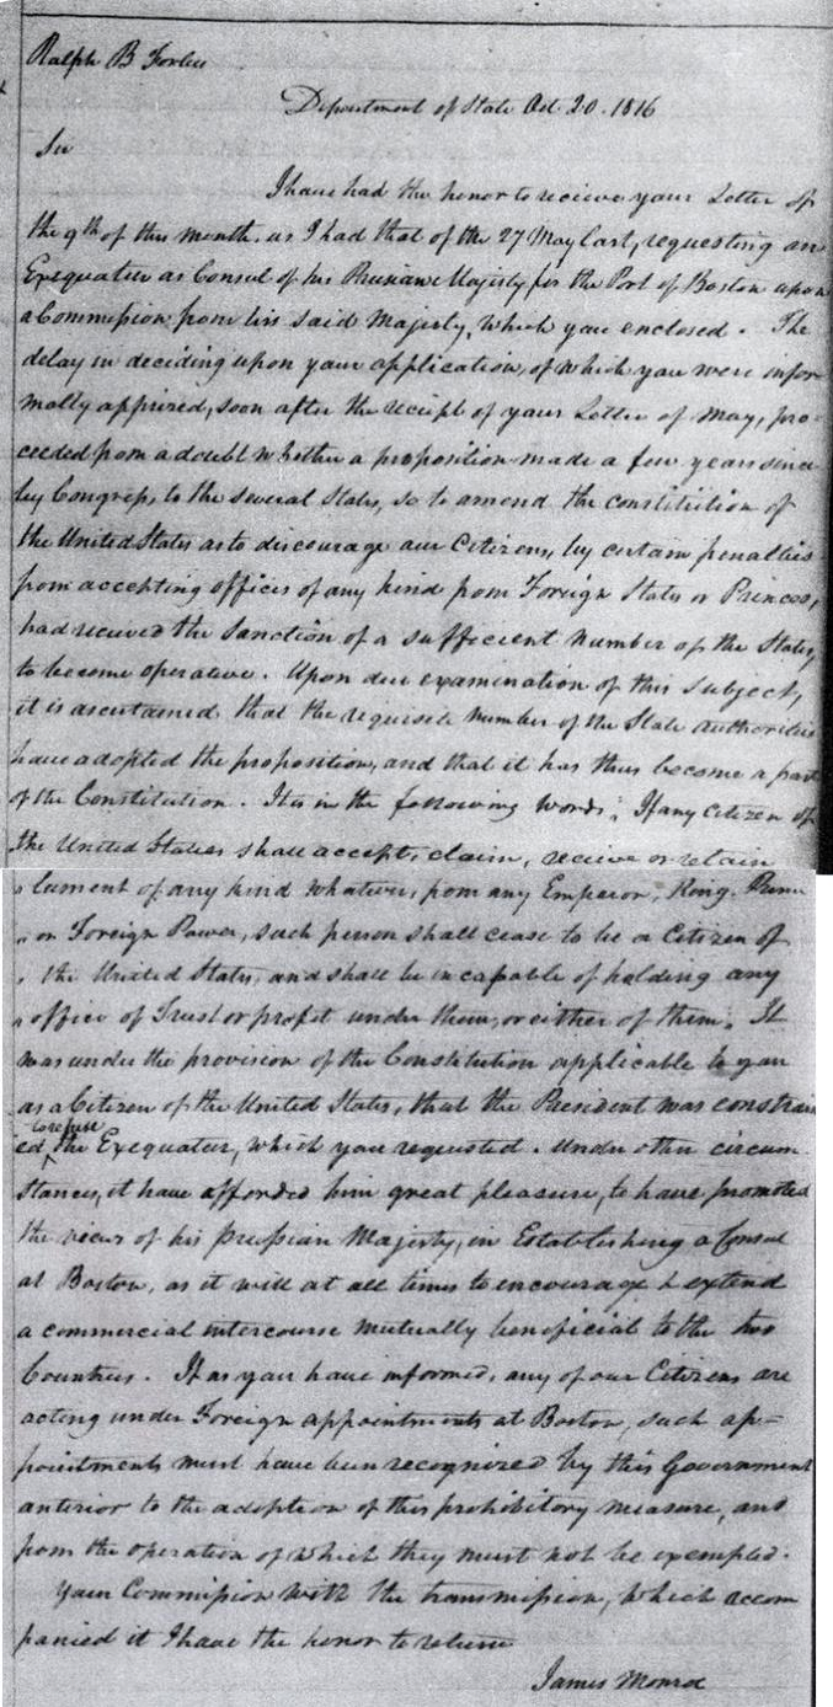 Ralph B Forbes
Department of State Oct 20. 1816
Sir
I have had the honor to recieve your Letter of
the 9th of this month, as I had that of the 27 May last, requesting an
Exequatur as Consul of his Prussian Majesty for the Port of Boston upon
a Commission from his said Majesty, which you enclosed. The
delay in deciding upon your application, of which you were infor
mally apprized, soon after the receipt of your Letter of May, pro
ceeded from a doubt whether a proposition made a few years since
by Congress, to the several States, so to amend the constitution of
the United States as to discourage our Citizens, by certain penalties
from accepting offices of any kind from Foreign States or Princes,
had received the Sanction of a sufficient number of the States,
to become operative. Upon due examination of this subject,
it is ascertained that the requisite number of the State authorities
have adopted the proposition, and that it has thus become a part
of the Constitution. It is in the following words; If any Citizen of
the United States shall accept, claim, recieve or retain
" lument of any kind whatever, from any Emperor, King, Prince
" or Foreign Power, such person shall cease to be a Citizen of
" the United States, and shall be incapable of holding any
" office of Trust or profit under them, or either of them. It
was under the provision of the Constitution applicable to you
as a Citizen of the United States, that the President was constrain
ed to refuse the Exequatur, which you requested. Under other circum
stances, it have afforded him great pleasure, to have promoted
the views of his Prussian Majesty, in Establishing a Consul
at Boston, as it will at all times to encourage & extend
a commercial intercourse mutually beneficial to the two
Countries. If as you have informed, any of our Citizens are
acting under Foreign appointments at Boston, such ap=
pointments must have been recognized by this Government
anterior to the adoption of this prohibitory measure, and
from the operation of which they must not be exempted.
Your Commission with the transmission, which accom
panied it I have the honor to return
James Monroe